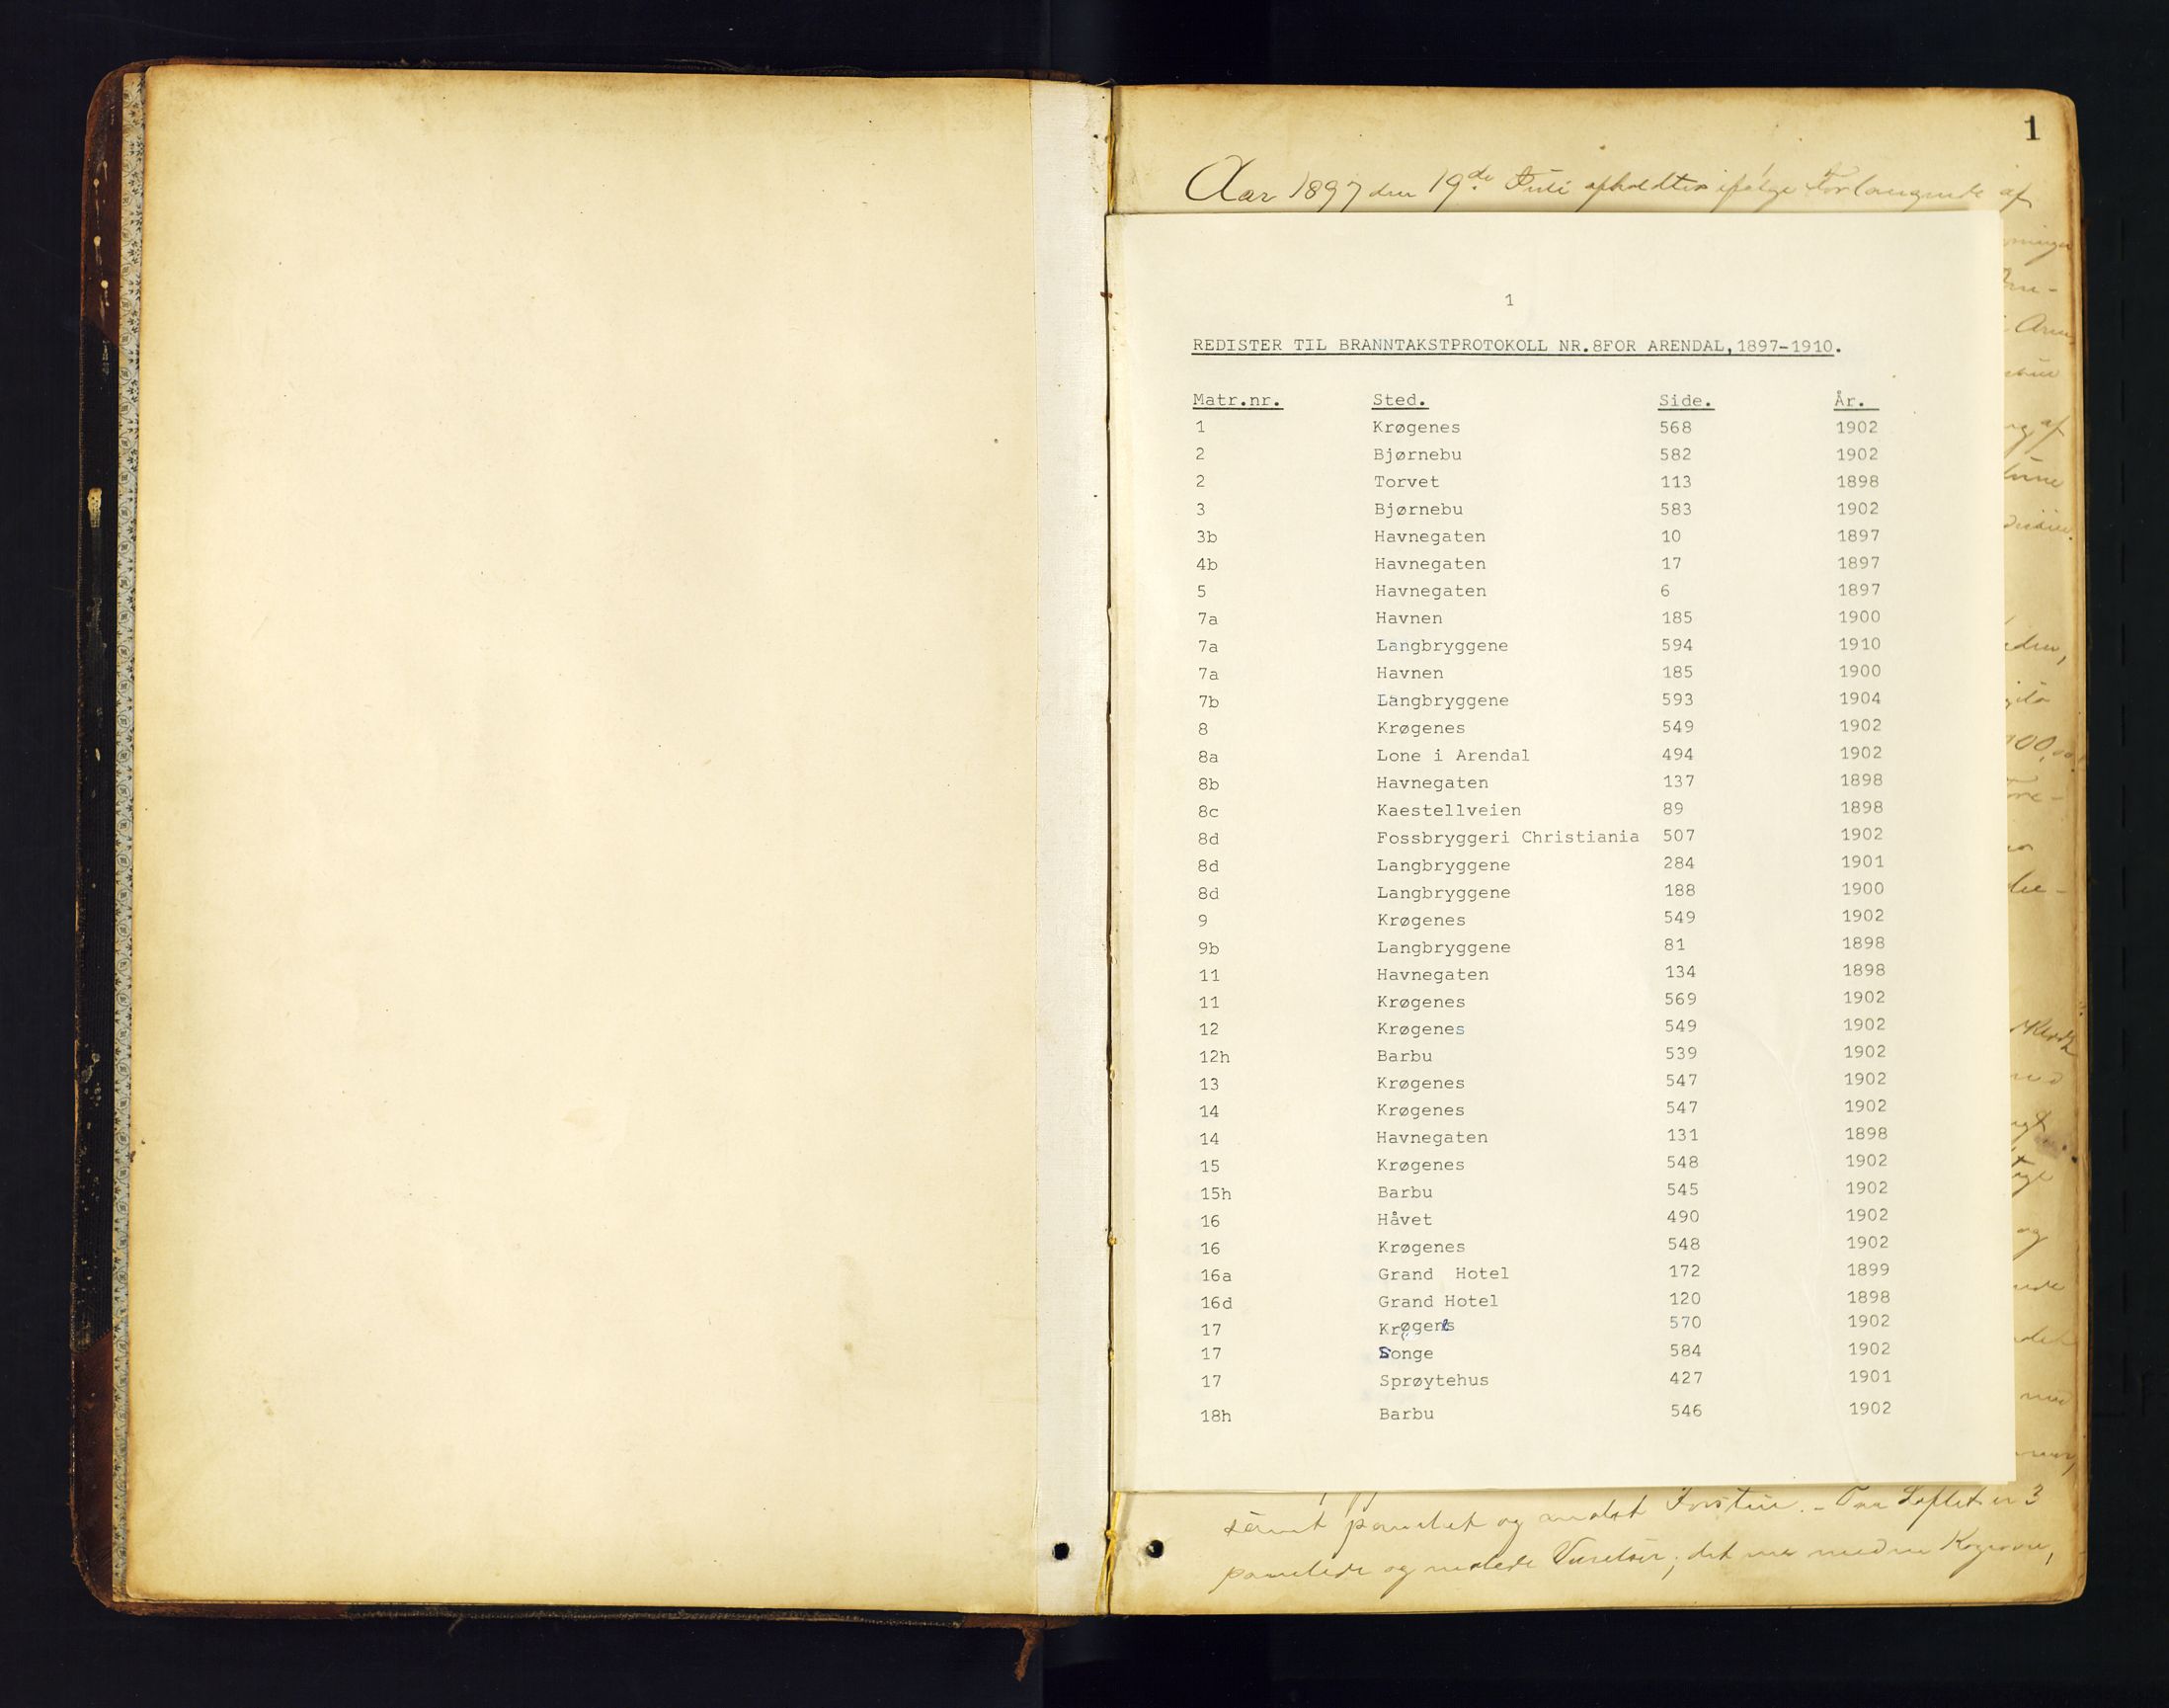 1
Aar 1897 den 19de Juli afholdtes ifølge Forlangende af
1
REDISTER TIL BRANNTAKSTPROTOKOLL NR.8FOR ARENDAL,1897-1910.
Matr.nr. Sted. Side. År.
1 Krøgenes 568 1902
2 Bjørnebu 582 1902
2 Torvet 113 1898
3 Bjørnebu 583 1902
3b Havnegaten 10 1897
4b Havnegaten 17 1897
5 Havnegaten 6 1897
7a Havnen 185 1900
7a Langbryggene 594 1910
7a Havnen 185 1900
7b Langbryggene 593 1904
8 Krøgenes 549 1902
8a Lone i Arendal 494 1902
8b Havnegaten 137 1898
8c Kaestellveien 89 1898
8d Fossbryggeri Christiania 507 1902
8d Langbryggene 284 1901
8d Langbryggene 188 1900
9 Krøgenes 549 1902
9b Langbryggene 81 1898
11 Havnegaten 134 1898
11 Krøgenes 569 1902
12 Krøgenes 549 1902
12h Barbu 539 1902
13 Krøgenes 547 1902
14 Krøgenes 547 1902
14 Havnegaten 131 1898
15 Krøgenes 548 1902
15h Barbu 545 1902
16 Håvet 490 1902
16 Krøgenes 548 1902
16a Grand Hotel 172 1899
16d Grand Hotel 120 1898
17 Krøgenes 570 1902
17 Songe 584 1902
17 Sprøytehus 427 1901
18h Barbu 546 1902
samt panelet og malet Forstue. - Paa Loftet er 3
panelede og malede Værelser; det ene med en Kogeovn,